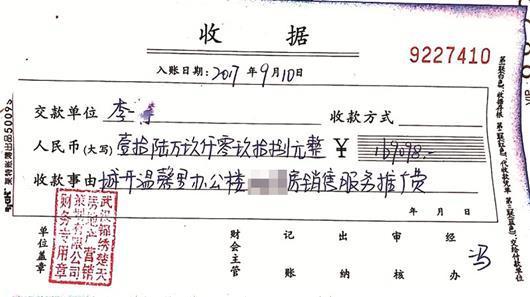 收 据
9227410
入账日期：2017年9月10日
交款单位 李 收款方式
人民币(大写) 壹拾陆万玖仟零玖拾捌元整 ¥ 169098.-
收款事由 城开温馨里办公楼 房销售服务推广费
年 月 日
武汉锦绣楚天
房地产营销
策划有限公司
财务专用章
单位盖章
财会主管 记账 出纳 审核 经办 冯
莱特账簿出品5009